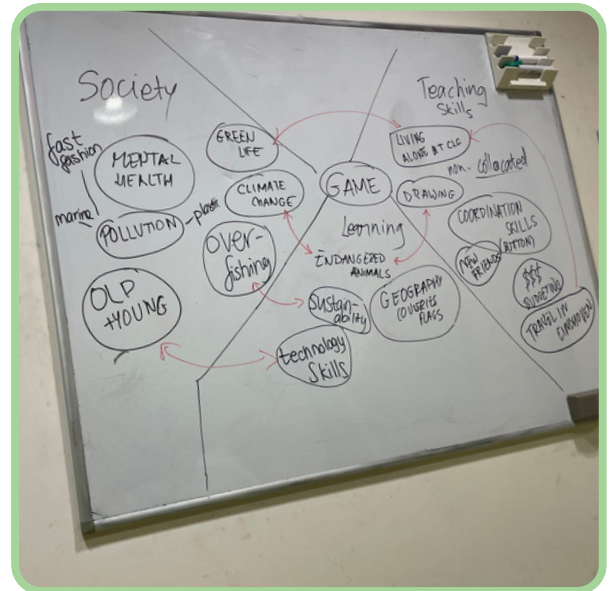 Society
fast
fashion
MENTAL
HEALTH
marine
POLLUTION
plastic
OLD
+YOUNG
GREEN
LIFE
CLIMATE
CHANGE
OVER-
fishing
GAME
Learning
ENDANGERED
ANIMALS
sustain-
ability
GEOGRAPHY
FLAGS
technology
skills
Teaching
Skills
LIVING
ALONE AT CLG
non-collocated
DRAWING
COORDINATION
SKILLS
(BUTTON)
NEW
FRIENDS
$$$
BUDGETING
TRAVEL IN
EINDHOVEN